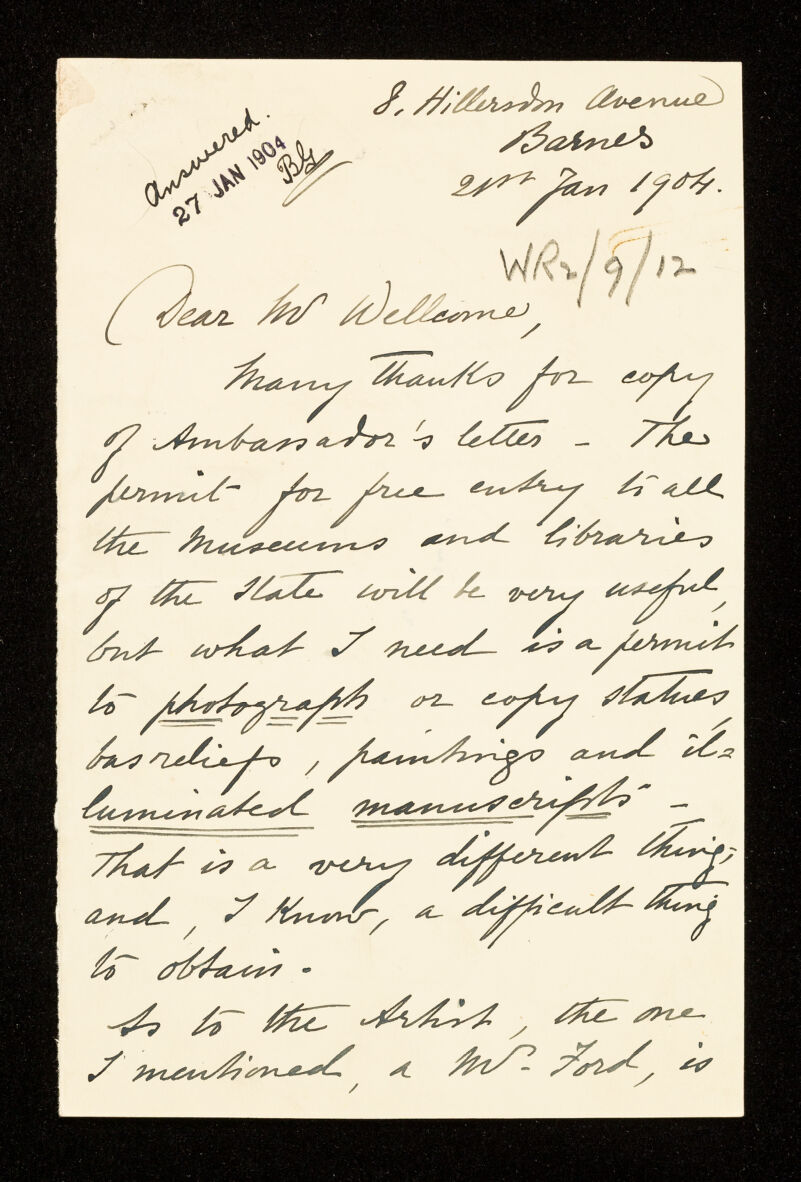 8, Hillersdon Avenue
Barnes
21st Jan 1904.
Answered.
27 JAN 1904
BG
WR2/9/12
Dear Mr Wellcome,
Many thanks for copy
of Ambassador's letter - The
permit for free entry to all
the Museums and libraries
of the State will be very useful,
but what I need is a permit
to photograph or copy statues,
basreliefs, paintings and il=
luminated manuscripts -
That is a very different thing,
and, I know, a difficult thing
to obtain.
As to the Artist, the one
I mentioned, a Mr. Ford, is